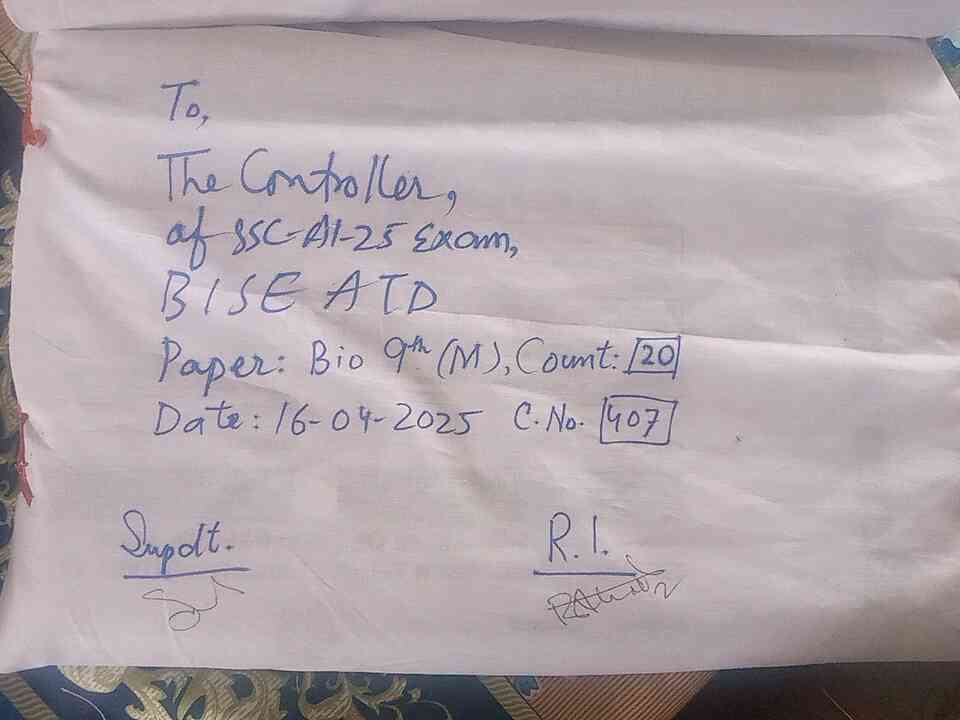 To,
The Controller,
of SSC-A1-25 Exam,
BISE ATD
Paper: Bio 9th (M), Count: 20
Date: 16-04-2025 C.No. 407
Supdt. R.I.